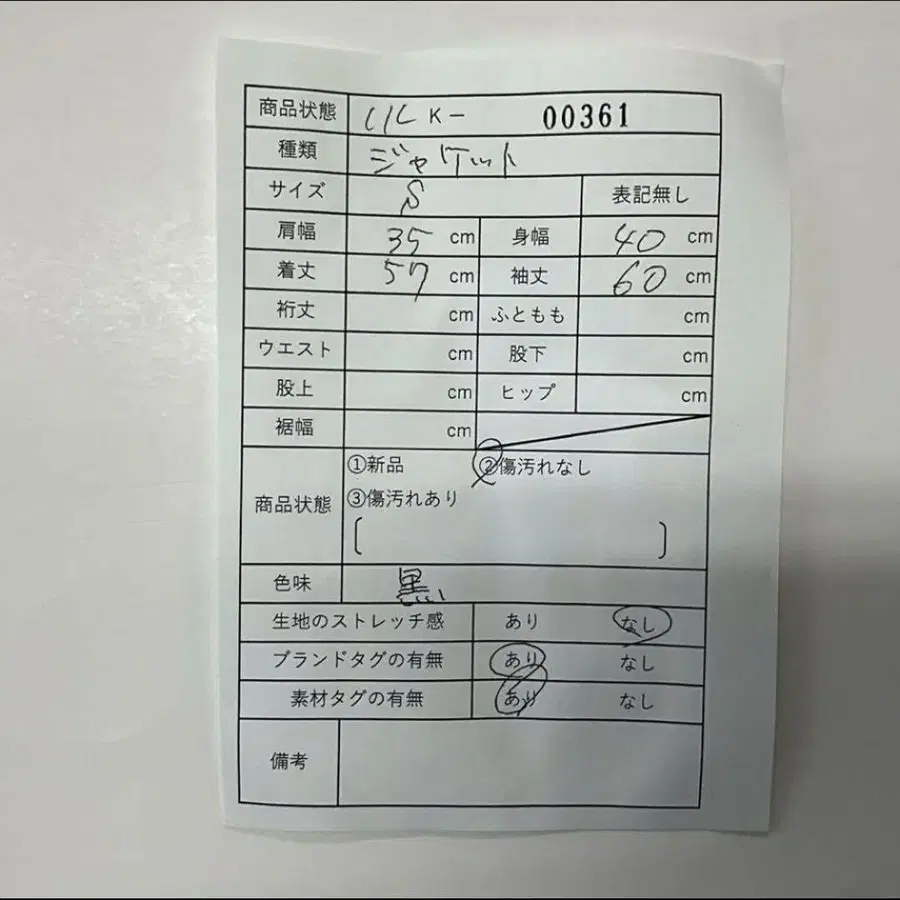 商品状態 K- 00361
種類 ジャケット
サイズ S 表記無し
肩幅 35 cm 身幅 40 cm
着丈 57 cm 袖丈 60 cm
裄丈 cm ふともも cm
ウエスト cm 股下 cm
股上 cm ヒップ cm
裾幅 cm
①新品 ②傷汚れなし
商品状態 ③傷汚れあり
[ ]
色味 黒
生地のストレッチ感 あり なし
ブランドタグの有無 あり なし
素材タグの有無 あり なし
備考